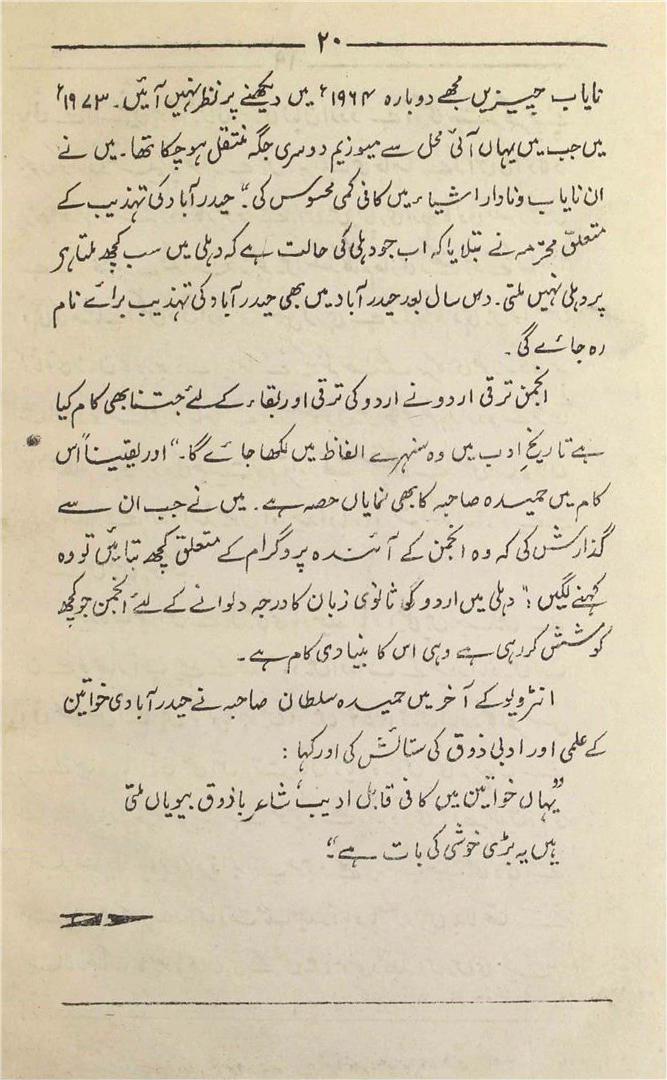 ۲۰
نایاب چیزیں مجھے دوبارہ ۱۹۶۴ء میں دیکھنے پر نظر نہیں آئیں۔ ۱۹۷۳ء
میں جب میں یہاں آئی محل سے میوزیم دوسری جگہ منتقل ہو چکا تھا۔ میں نے
ان نایاب و نادار اشیاء میں کافی کمی محسوس کی" حیدرآباد کی تہذیب کے
متعلق محترمہ نے بتلایا کہ اب جو دہلی کی حالت ہے کہ دہلی میں سب کچھ ملتا ہے
پر دہلی نہیں ملتی۔ دس سال بعد حیدرآباد میں بھی حیدرآباد کی تہذیب برائے نام
رہ جائے گی۔
انجمن ترقی اردو نے اردو کی ترقی اور بقاء کے لئے جتنا بھی کام کیا
ہے تاریخِ ادب میں وہ سنہرے الفاظ میں لکھا جائے گا۔" اور یقیناً اس
کام میں حمیدہ صاحبہ کا بھی نمایاں حصہ ہے۔ میں نے جب ان سے
گذارش کی کہ وہ انجمن کے آئندہ پروگرام کے متعلق کچھ بتائیں تو وہ
کہنے لگیں :" دہلی میں اردو کو ثانوی زبان کا درجہ دلوانے کے لئے انجمن جو کچھ
کوشش کر رہی ہے وہی اس کا بنیادی کام ہے۔
انٹرویو کے آخر میں حمیدہ سلطان صاحبہ نے حیدرآبادی خواتین
کے علمی اور ادبی ذوق کی ستائش کی اور کہا :
"یہاں خواتین میں کافی قابل ادیب، شاعر باذوق بیویاں ملتی
ہیں یہ بڑی خوشی کی بات ہے"۔